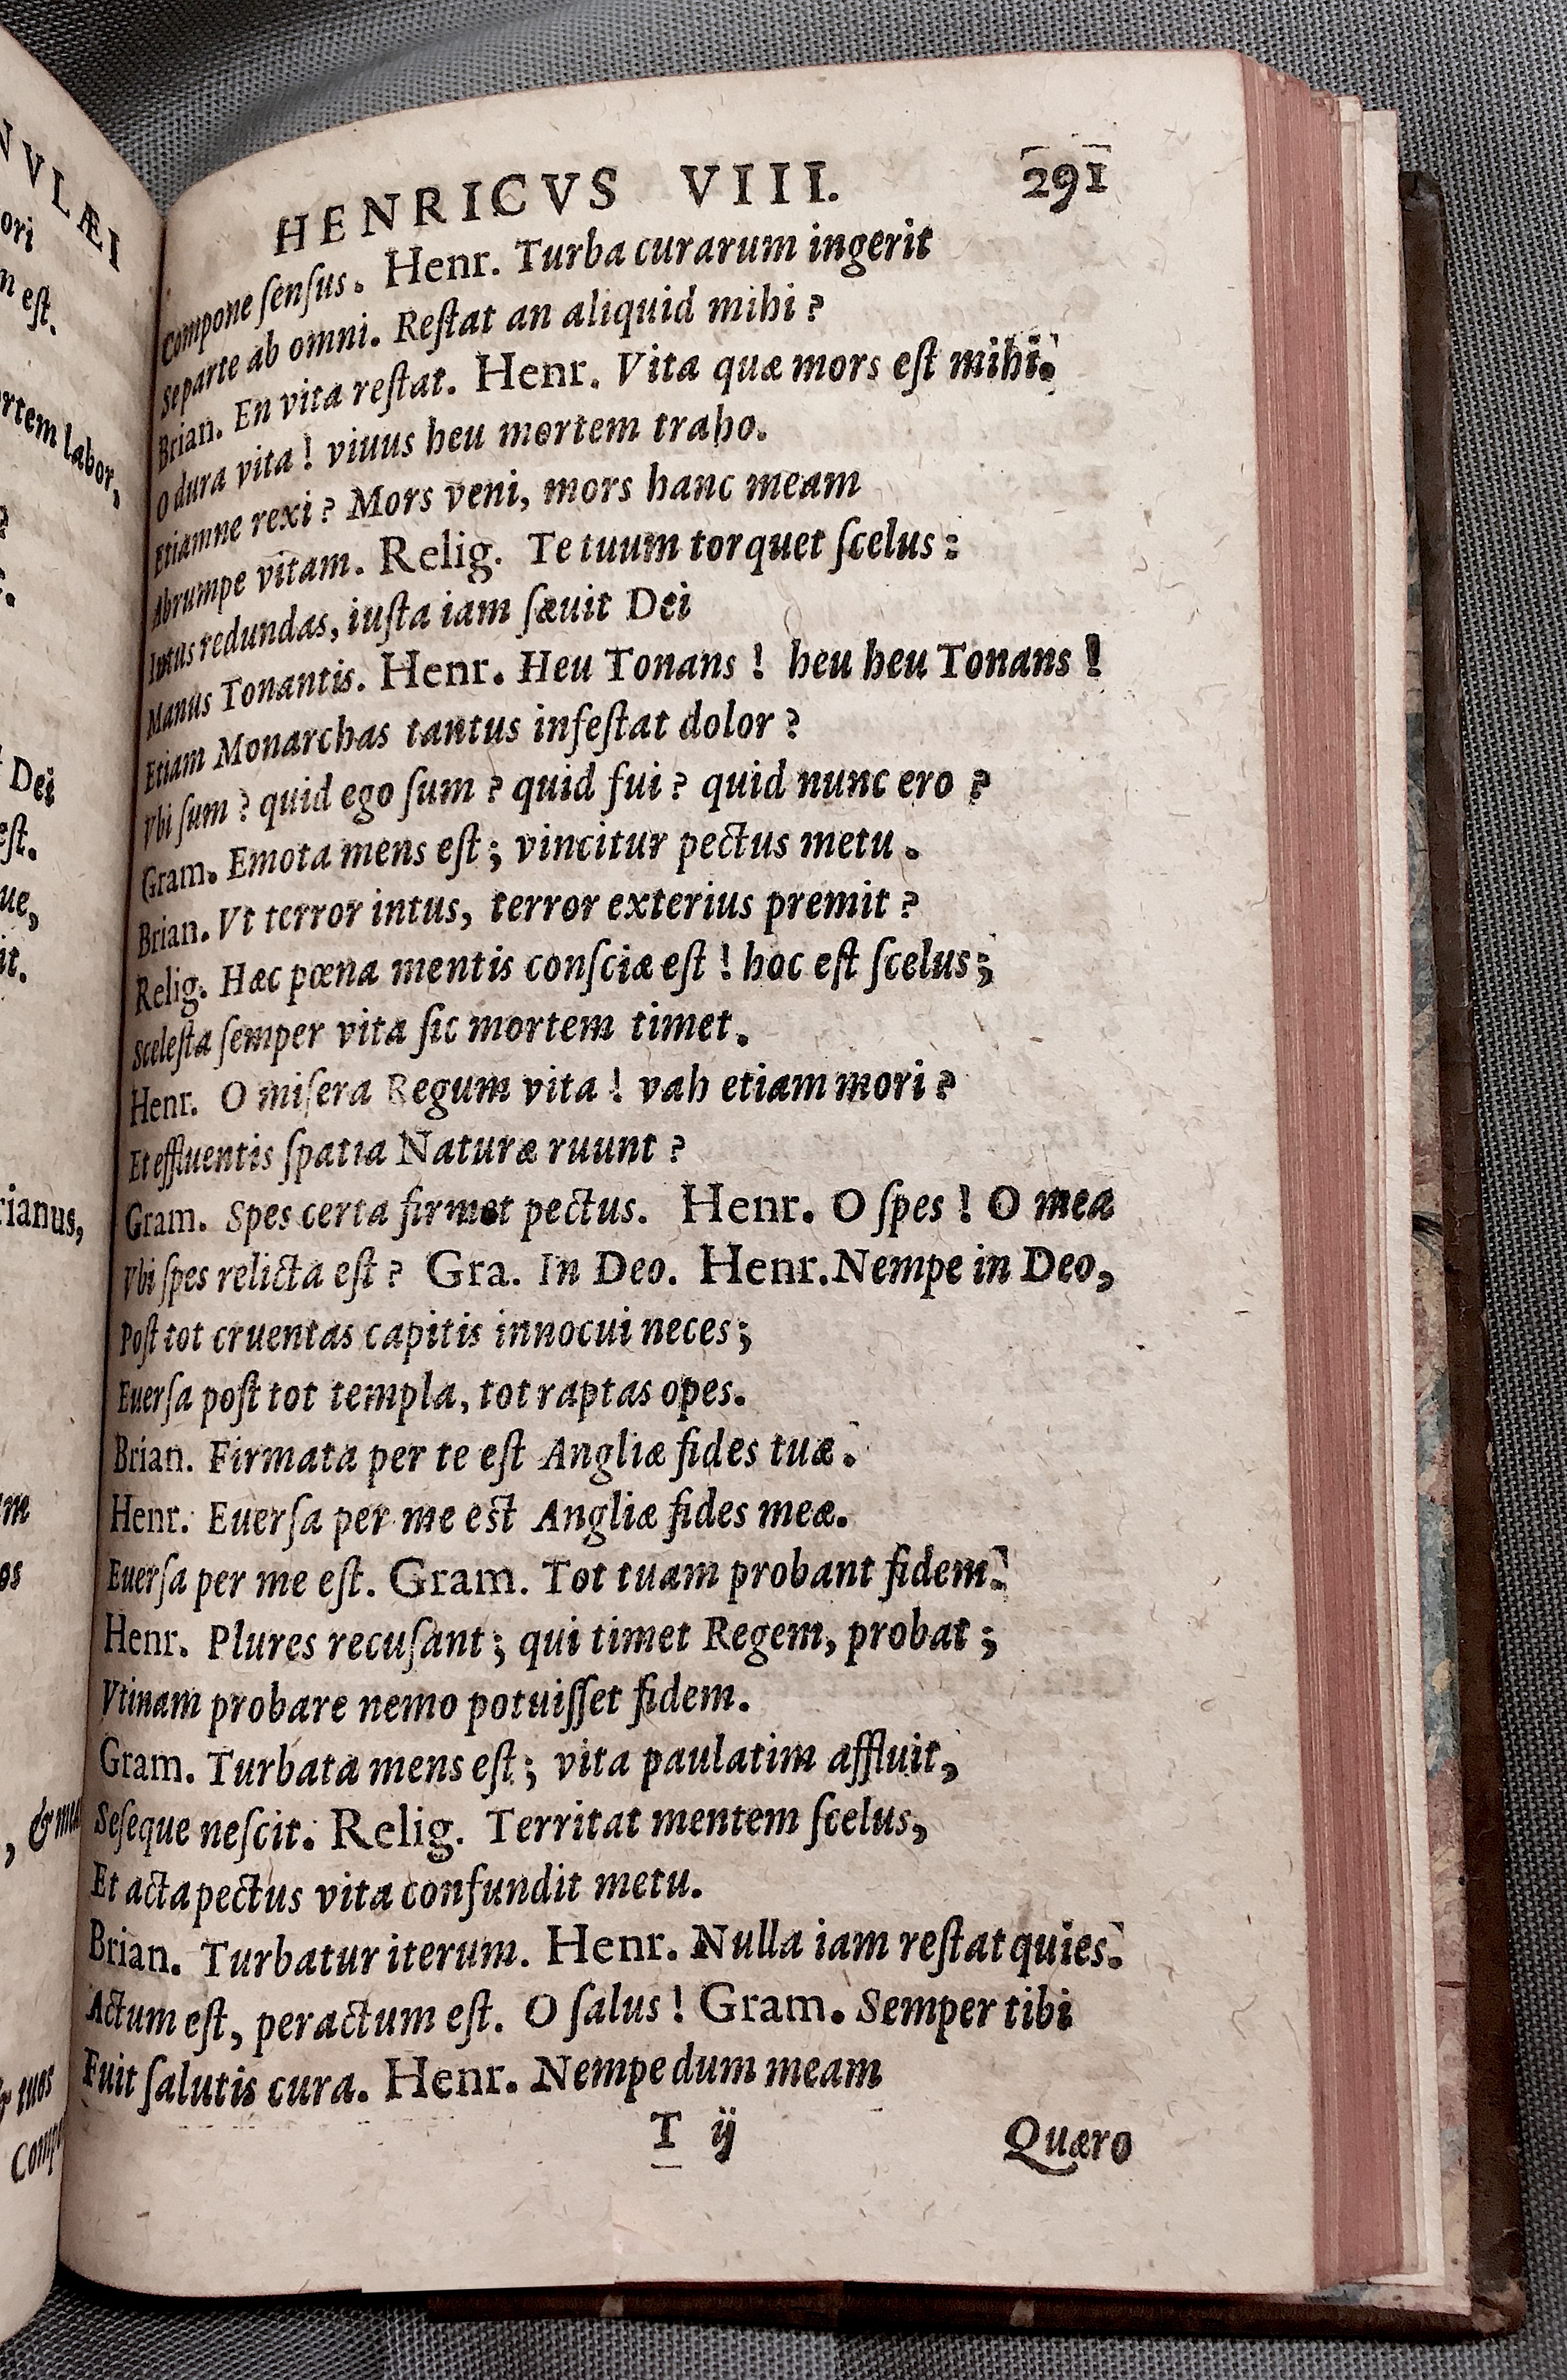 NVLÆI
ori
n eſt.
rtem labor,
?
Dei
eſt.
ue,
it.
rianus,
me
os
, & mea
& tuos
Comp
HENRICVS VIII. 291
Compone ſenſus. Henr. Turba curarum ingerit
Se parte ab omni. Reſtat an aliquid mihi ?
Brian. En vita reſtat. Henr. Vita quæ mors eſt mihi.
O dura vita ! viuus heu mortem traho.
Etiamne rexi ? Mors veni, mors hanc meam
Abrumpe vitam. Relig. Te tuum torquet ſcelus :
Intus redundas, iuſta iam ſæuit Dei
Manus Tonantis. Henr. Heu Tonans ! heu heu Tonans !
Etiam Monarchas tantus infeſtat dolor ?
Vbi ſum ? quid ego ſum ? quid fui ? quid nunc ero ?
Gram. Emota mens eſt ; vincitur pectus metu .
Brian. Vt terror intus, terror exterius premit ?
Relig. Hæc pœna mentis conſciæ eſt ! hoc eſt ſcelus ;
Sceleſta ſemper vita ſic mortem timet.
Henr. O miſera Regum vita ! vah etiam mori ?
Et effluentis ſpatia Naturæ ruunt ?
Gram. Spes certa firmet pectus. Henr. O ſpes ! O mea
Vbi ſpes relicta eſt ? Gra. In Deo. Henr. Nempe in Deo,
Poſt tot cruentas capitis innocui neces ;
Euerſa poſt tot templa, tot raptas opes.
Brian. Firmata per te eſt Angliæ fides tuæ .
Henr. Euerſa per me est Angliæ fides meæ.
Euerſa per me eſt. Gram. Tot tuam probant fidem.
Henr. Plures recuſant ; qui timet Regem, probat ;
Vtinam probare nemo potuiſſet fidem.
Gram. Turbata mens eſt ; vita paulatim affluit,
Seſeque neſcit. Relig. Territat mentem ſcelus,
Et acta pectus vita confundit metu.
Brian. Turbatur iterum. Henr. Nulla iam reſtat quies.
Actum eſt, peractum eſt. O ſalus ! Gram. Semper tibi
Fuit ſalutis cura. Henr. Nempe dum meam
T ij Quæro